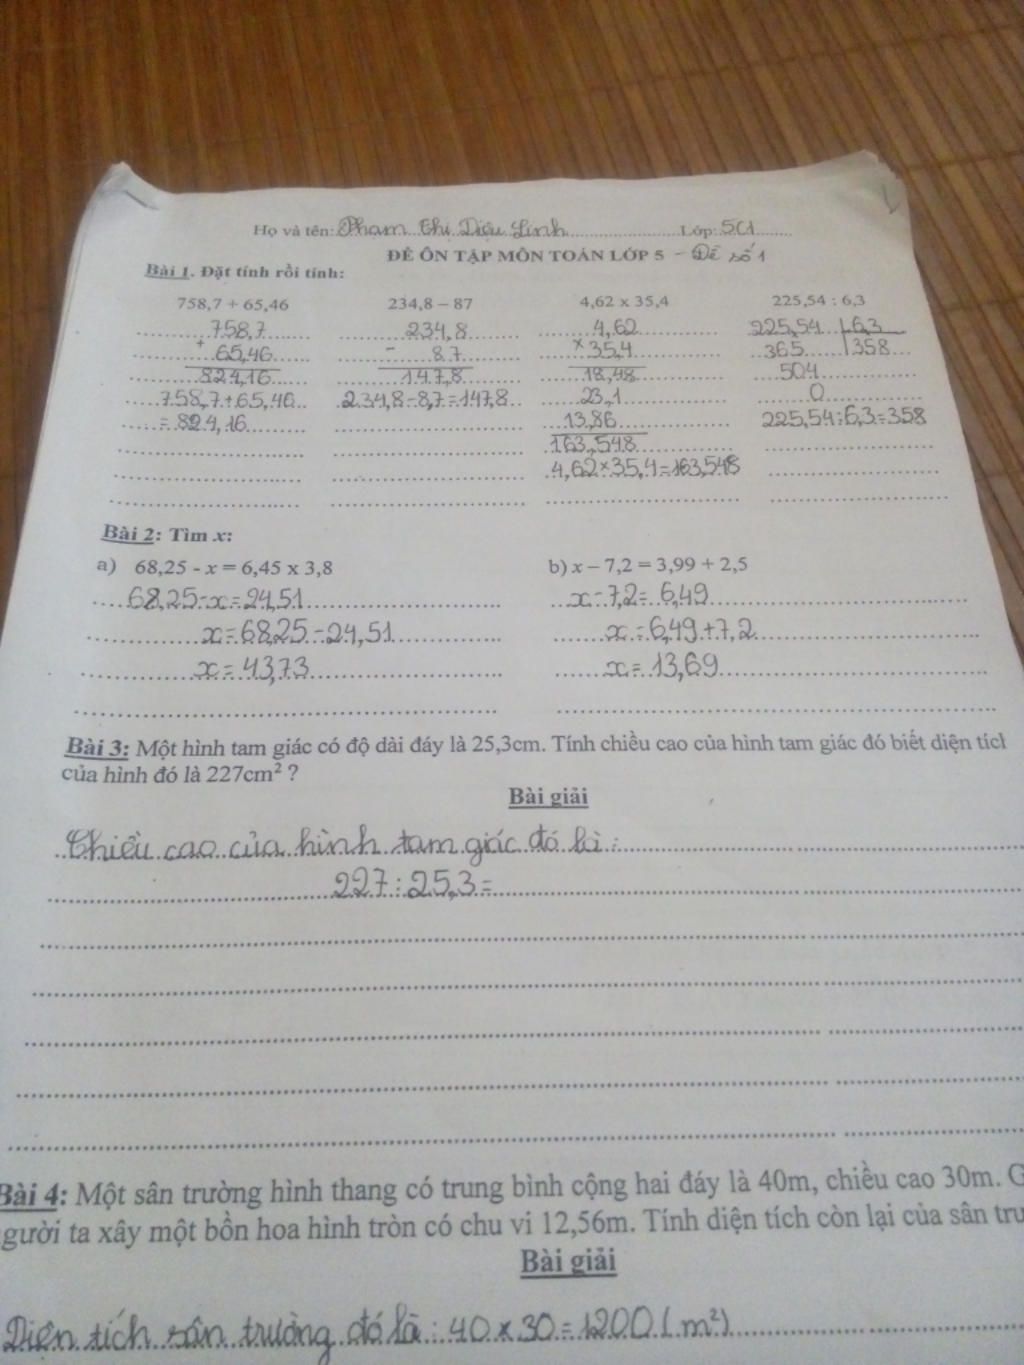 Họ và tên: Phạm Thị Diệu Linh Lớp: 5C1
ĐỀ ÔN TẬP MÔN TOÁN LỚP 5 - Đề số 1
Bài 1. Đặt tính rồi tính:
758,7 + 65,46 234,8 – 87 4,62 x 35,4 225,54 : 6,3
758,7 234,8 4,62 225,54 6,3
+ 65,46 - 8,7 × 35,4 365 358
824,16 147,8 18,48 504
758,7+65,46 234,8-8,7=147,8 23,1 0
= 824,16 13,86 225,54:6,3=358
163,548
4,62×35,4=163,548
Bài 2: Tìm x:
a) 68,25 - x = 6,45 x 3,8 b) x – 7,2 = 3,99 + 2,5
68,25-x=24,51 x-7,2=6,49
x=68,25-24,51 x=6,49+7,2
x=43,73 x=13,69
Bài 3: Một hình tam giác có độ dài đáy là 25,3cm. Tính chiều cao của hình tam giác đó biết diện tích
của hình đó là 227cm² ?
Bài giải
Chiều cao của hình tam giác đó là :
227:25,3=
Bài 4: Một sân trường hình thang có trung bình cộng hai đáy là 40m, chiều cao 30m.
người ta xây một bồn hoa hình tròn có chu vi 12,56m. Tính diện tích còn lại của sân
Bài giải
Diện tích sân trường đó là : 40×30=1200(m²)